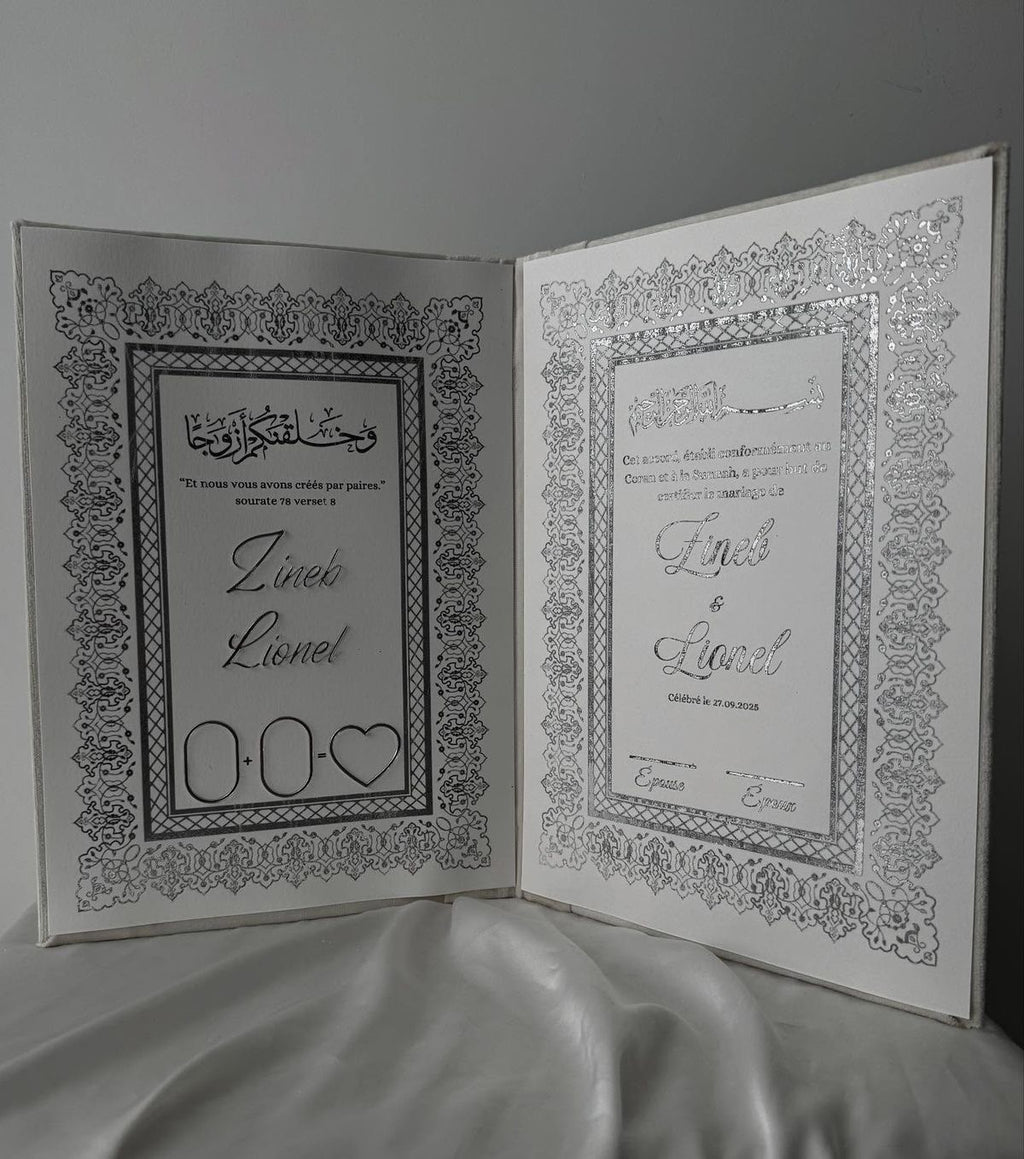 وَخَلَقْنَكُمْ أَزْوَجًا
“Et nous vous avons créés par paires.”
sourate 78 verset 8
Zineb
Lionel
+ =
بسم الله الرحمن الرحيم
Cet accord, établi conformément au
Coran et à la Sunnah, a pour but de
certifier le mariage de
Zineb
&
Lionel
Célébré le 27.09.2025
Épouse Époux